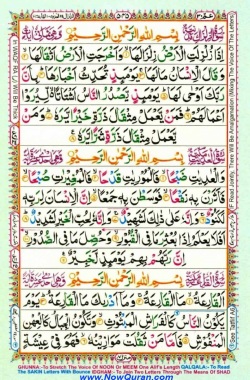 بِسْمِ اللّٰهِ الرَّحْمٰنِ الرَّحِيْمِ
اِذَا زُلْزِلَتِ الْاَرْضُ زِلْزَالَهَا وَاَخْرَجَتِ الْاَرْضُ اَثْقَالَهَا
وَقَالَ الْاِنْسَانُ مَا لَهَا يَوْمَئِذٍ تُحَدِّثُ اَخْبَارَهَا بِاَنَّ
رَبَّكَ اَوْحٰى لَهَا يَوْمَئِذٍ يَّصْدُرُ النَّاسُ اَشْتَاتًا لِّيُرَوْا
اَعْمَالَهُمْ فَمَنْ يَّعْمَلْ مِثْقَالَ ذَرَّةٍ خَيْرًا يَّرَهٗ وَمَنْ
يَّعْمَلْ مِثْقَالَ ذَرَّةٍ شَرًّا يَّرَهٗ
بِسْمِ اللّٰهِ الرَّحْمٰنِ الرَّحِيْمِ
وَالْعٰدِيٰتِ ضَبْحًا فَالْمُوْرِيٰتِ قَدْحًا فَالْمُغِيْرٰتِ صُبْحًا
فَاَثَرْنَ بِهٖ نَقْعًا فَوَسَطْنَ بِهٖ جَمْعًا اِنَّ الْاِنْسَانَ لِرَبِّهٖ
لَكَنُوْدٌ وَاِنَّهٗ عَلٰى ذٰلِكَ لَشَهِيْدٌ وَاِنَّهٗ لِحُبِّ الْخَيْرِ لَشَدِيْدٌ
اَفَلَا يَعْلَمُ اِذَا بُعْثِرَ مَا فِى الْقُبُوْرِ وَحُصِّلَ مَا فِى الصُّدُوْرِ
اِنَّ رَبَّهُمْ بِهِمْ يَوْمَئِذٍ لَّخَبِيْرٌ
بِسْمِ اللّٰهِ الرَّحْمٰنِ الرَّحِيْمِ
اَلْقَارِعَةُ مَا الْقَارِعَةُ وَمَا اَدْرٰىكَ مَا الْقَارِعَةُ يَوْمَ
يَكُوْنُ النَّاسُ كَالْفَرَاشِ الْمَبْثُوْثِ وَتَكُوْنُ الْجِبَالُ كَالْعِهْنِ
GHUNNA:-To Stretch The Voice Of NOON Or MEEM One Alif's Length QALQALA:- To Read
The SAKIN Letters With Bounce IDGHAM:- To Join Two Letters Through The Means Of SHAD
www.NowQuran.com